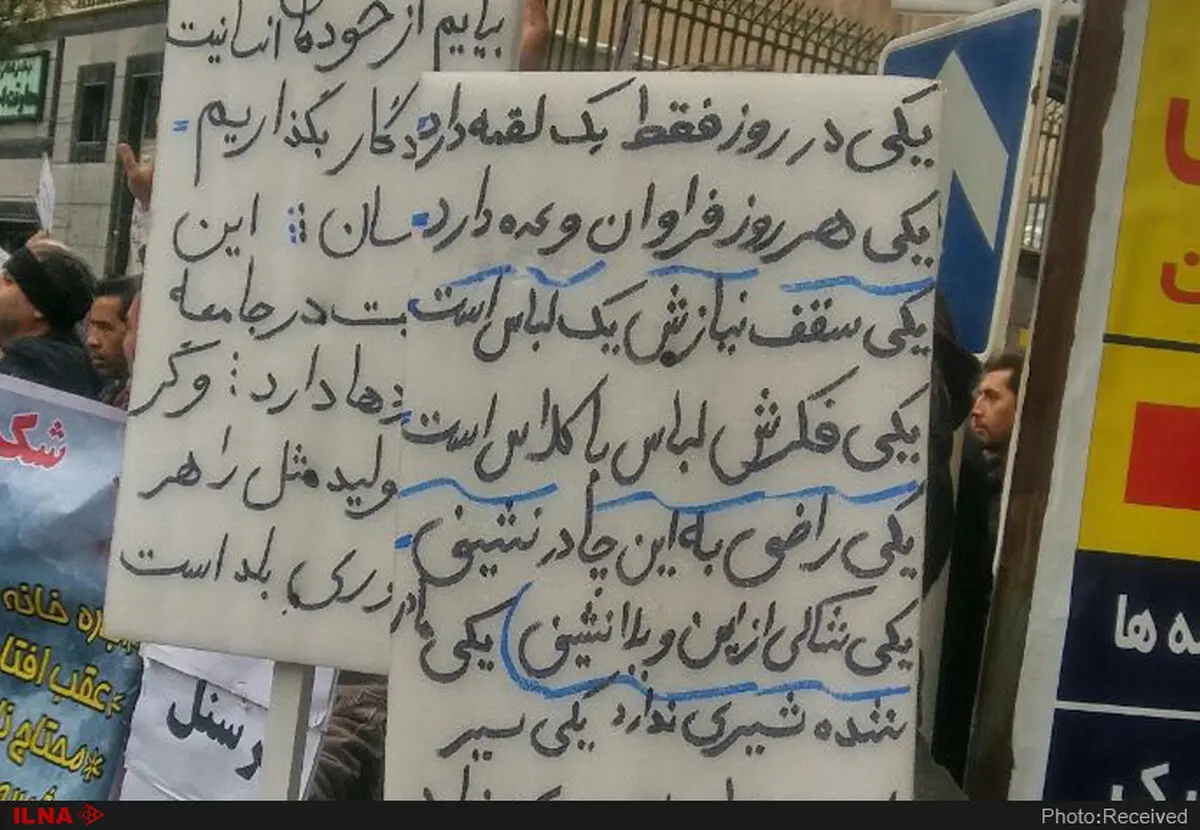 یکی در روز فقط یک لقمه دارد
یکی هر روز فراوان وعده دارد
یکی سقف نیازش یک لباس است
یکی فکرش لباس با کلاس است
یکی راضی به این چادر نشینی
یکی شاکی از این ویلا نشینی
یکی مادر
شیری ندارد یکی سیر
بیایم از خودمان انسانیت
گار بگذاریم
سان : این
در جامعه
دارد : وگر
ولید مثل را هر
وری بلد است
شک
خانه
عقب افتا
* محتاج
رسنل
ه ها
یک
ILNA
Photo:Received